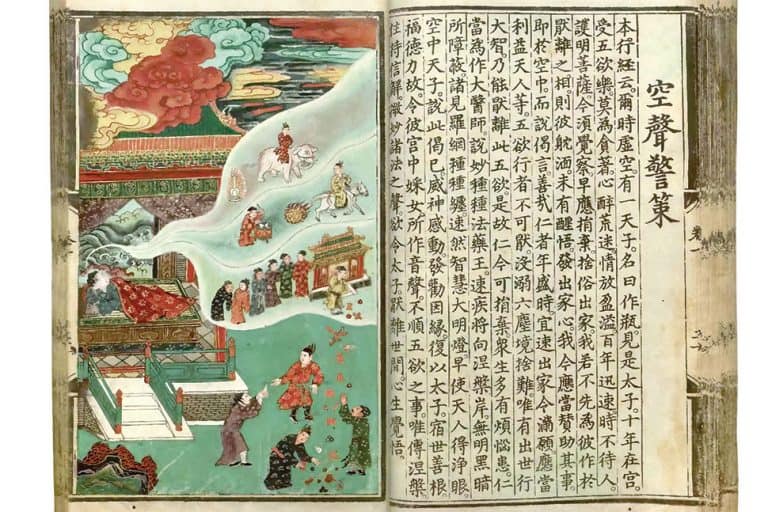 空聲警策
本行經云。爾時虛空。有一天子。名曰作瓶。見是太子。十年在宮。
受五欲樂。莫為貪著。心醉荒迷。情放盈溢。百年迅速。時不待人。
護明菩薩。今須覺察。早應捐棄。捨俗出家。我若不先為彼作於
厭離之相。則彼躭湎。未有醒悟發出家心。我今應當贊助其事。
即於空中。而說偈言。善哉仁者年盛時。宜速出家令滿願。應當
利益天人等。五欲行者不可厭。沒溺六塵境捨難。唯有出世行
大智。乃能厭離此五欲。是故仁今可捐棄。眾生多有煩惱患。仁
當為作大醫師。說妙種種法藥王。速疾將向涅槃岸。無明黑暗
所障蔽。諸見羅網種種纏。速然智慧大明燈。早使天人得淨眼。
空中天子。說此偈已。威神感動。發勸因緣。復以太子。宿世善根
福德力故。令彼宮中婇女。所作音聲。不順五欲之事。唯傳涅槃
住持信解。微妙諸法之聲。欲令太子厭離世間。心生覺悟。
卷一